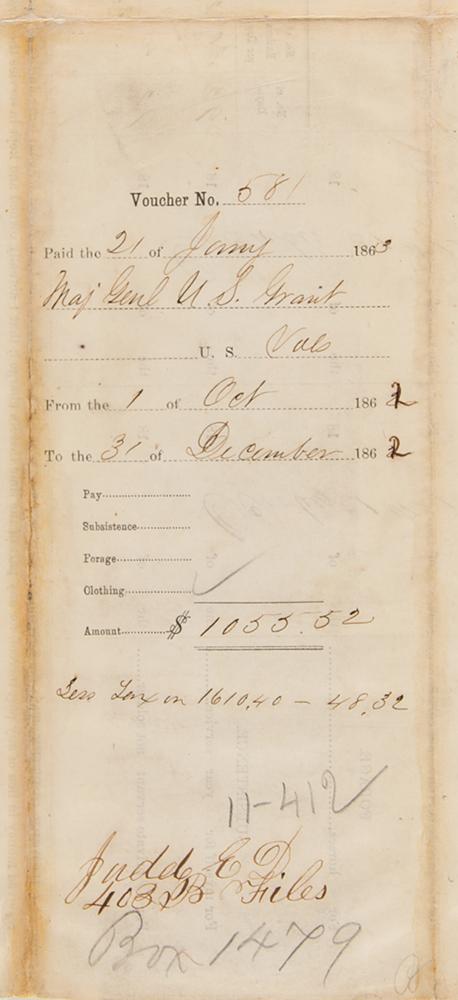 Voucher No. 581
Paid the 21 of Jany 1863
Maj Genl U. S. Grant
U. S. Vols
From the 1 of Oct 1862
To the 31 of December 1862
Pay
Subsistence
Forage
Clothing
Amount $ 1055.52
Less Tax on 1610.40 – 48.32
11-412
Judd E D
403 B Files
Box 1479